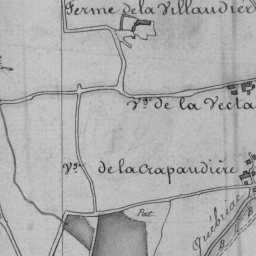 Ferme de la Villaudièr
V.ge de la Vecta
V.ge de la Crapaudière
Pat.
Québriac